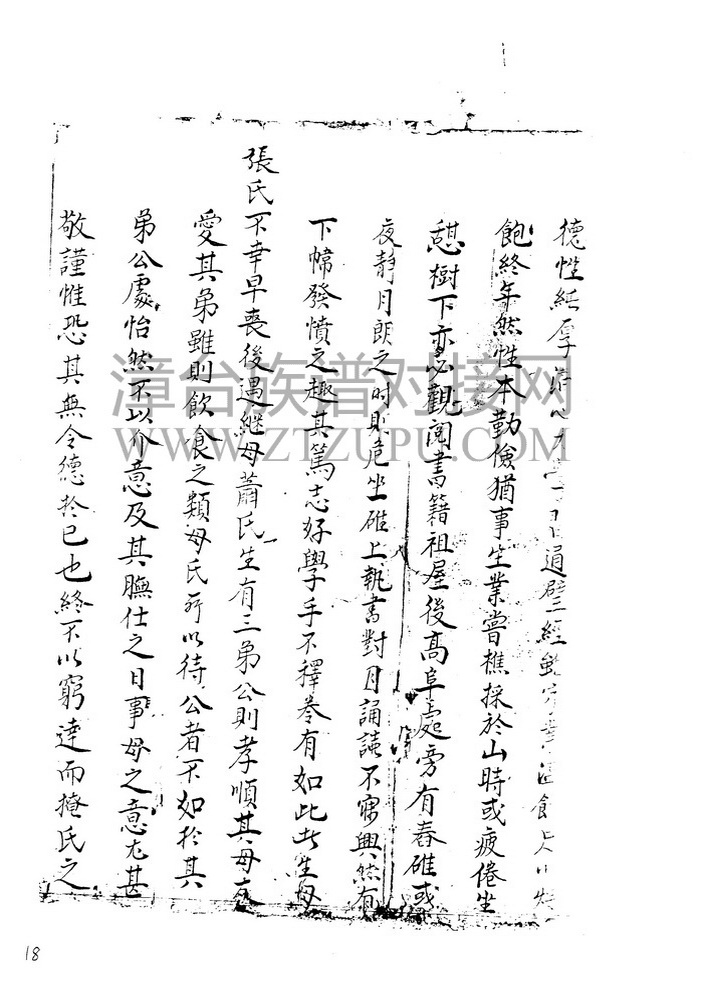 德性純厚通經食
飽終年然性本勤儉猶事生業嘗樵採於山時或疲倦坐
憩樹下亦必觀閱書籍祖屋後高阜處旁有舂碓或
夜靜月朗之时則危坐碓上執書對月誦讀不寐興然有
下幃發憤之趣其篤志好學手不釋卷有如此者生母
張氏不幸早喪後遇継母蕭氏生有三弟公則孝順其母友
愛其弟雖則飲食之類母氏所以待公者不如於其
弟公處怡然不以介意及其膴仕之日事母之意尤甚
敬謹惟恐其無令德於已也終不以窮達而掩氏之
漳台族谱对接网
WWW.ZTZUPU.COM
18